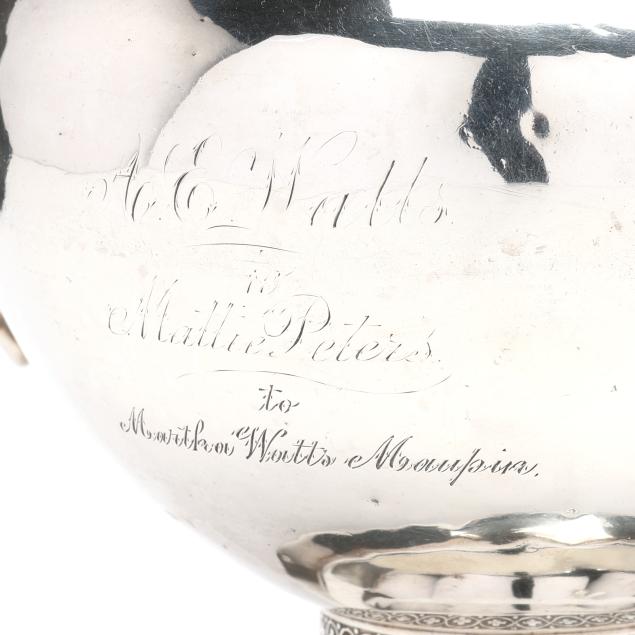 A.E. Watts
to
Mattie Peters.
to
Martha Watts Maupin.